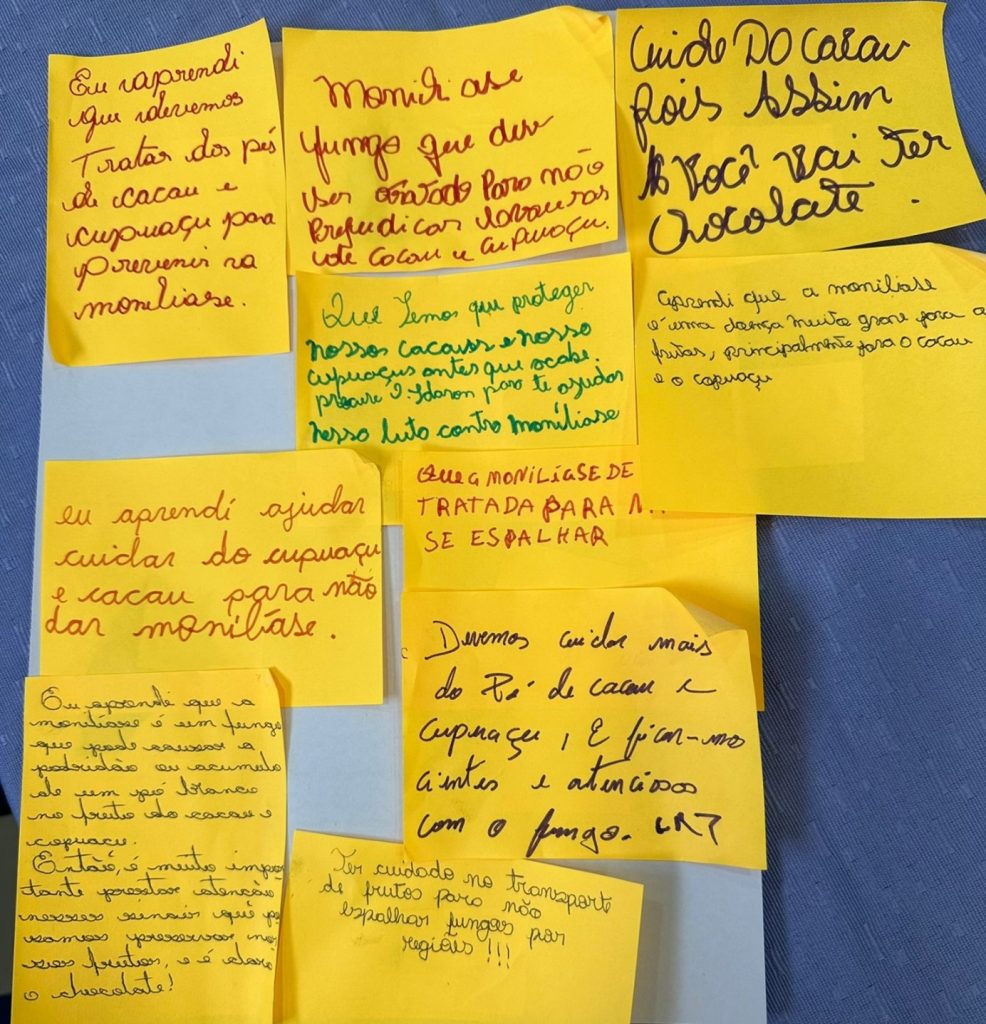 Eu aprendi
que devemos
Tratar dos pés
de cacau e
cupuaçu para
Prevenir a
moniliase.
Moniliase
fungo que deve
ser tratado Para não
Prejudicar lavouras
de cacau e cupuaçu.
Cuide DO Cacau
pois Assim
Você vai ter
chocolate.
Que Temos que proteger
nossos cacaus e nosso
cupuaçus antes que acabe.
procure o Idaron para te ajudar
nesso luto contra monilíase
aprendi que a moniliase
é uma doença muito grave para a
frutas, principalmente para o cacau
e o cupuaçu
eu aprendi ajudar
cuidar do cupuaçu
e cacau para não
dar moniliáse.
QUE A MONILIASE DE
TRATADA PARA N
SE ESPALHAR
Devemos cuidar mais
do Pé de cacau e
cupuaçu, E ficar-mo
cientes e atenciosos
com o fungo.
Eu aprendi que a
moniliase é um fungo
que pode causar a
podridão ou acumulo
de um pó branco
no fruto do cacau e
cupuacu.
Então, é muito impor
tante prestar atenção
nesses sinais que po
samos preservar nos
sos frutos, e é claro
o chocolate!
Ter cuidado no transporte
de frutos para não
espalhar fungos por
regiões!!!